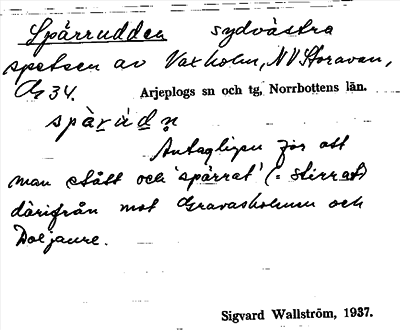 Spärrudden sydvästra
spetsen av Vaxholm, NV Storavan,
34. Arjeplogs sn och tg, Norrbottens län.
Antagligen för att
man stått och 'spärrat' (= stirrat)
därifrån mot Gravasholmen och
Doljaure.
Sigvard Wallström, 1937.